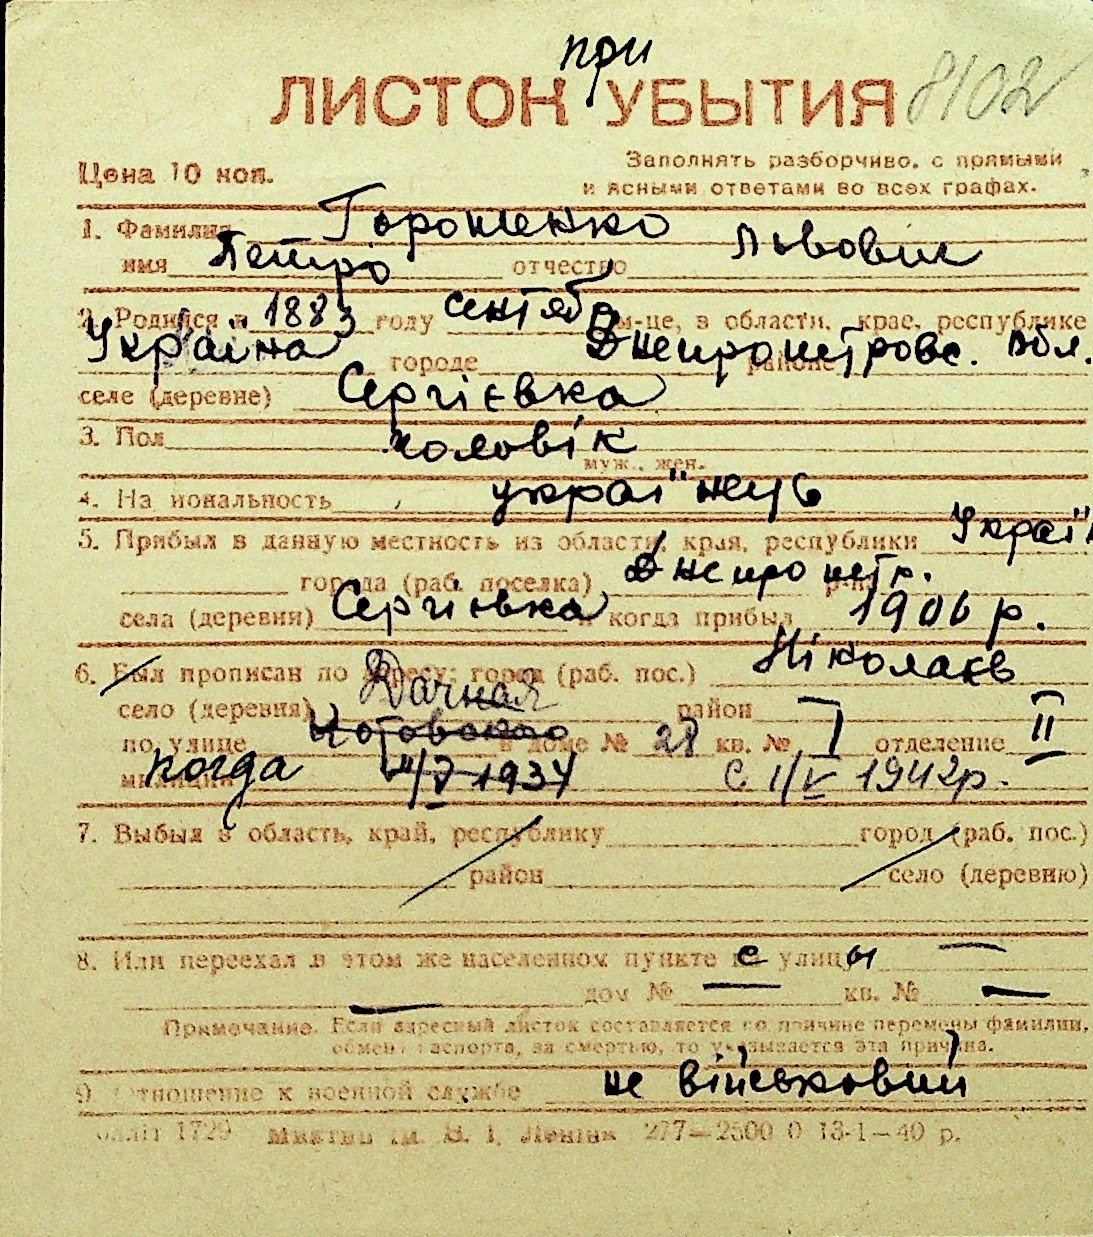 при
ЛИСТОК УБЫТИЯ 8102
Цена 10 коп.
Заполнять разборчиво, с прямыми
и ясными ответами во всех графах.
1. Фамилия Горошенко
имя Петро отчество Львович
2. Родился в 1883 году сентябр м-це, в области, крае, республике
Україна городе Днепропетровс. обл. районе
селе (деревне) Сергієвка
3. Пол чоловік
муж., жен.
4. Национальность українець
5. Прибыл в данную местность из области, края, республики Украї
города (раб. поселка) Днепропетр. р-на
села (деревни) Сергієвка и когда прибыл 1906 р.
6. Был прописан по адресу: город (раб. пос.) Ніколаєв
село (деревня) Дачная район
по улице Котовского в доме № 28 кв. № 1 отделение II
милиции когда 1/V 1934 с 1/V 1942р.
7. Выбыл в область, край, республику город (раб. пос.)
район село (деревню)
8. Или переехал в этом же населенном пункте с улицы
дом № кв. №
Примечание. Если адресный листок составляется по причине перемены фамилии,
обмена паспорта, за смертью, то указывается эта причина.
9. Отношение к военной службе не військовий
1729 ім. В. І. Леніна 277—2500 0 13-1—40 р.